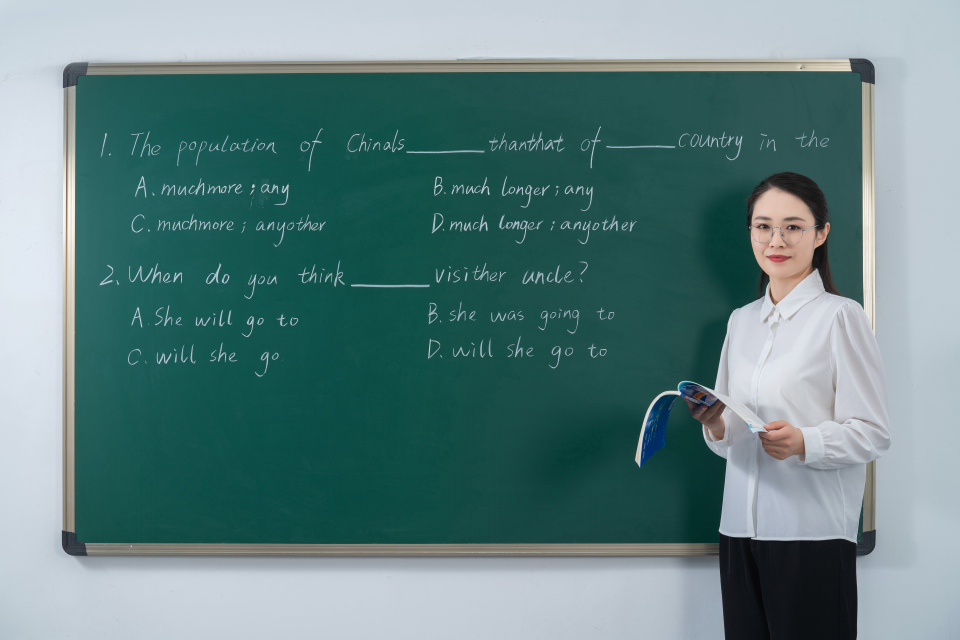 1. The population of Chinals______thanthat of______country in the
A. muchmore; any B. much longer; any
C. muchmore; anyother D. much longer; anyother
2. When do you think______visither uncle?
A. She will go to B. she was going to
C. will she go D. will she go to